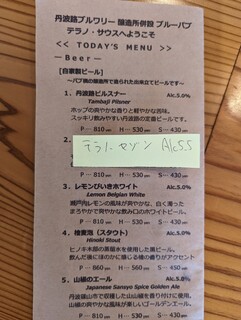 丹波路ブルワリー 醸造所併設 ブルーパブ
テラノ・サウスへようこそ
<< TODAY'S MENU >>
—Beer—
[自家製ビール]
～パブ横の醸造所で造られた出来立てビールです～
1．丹波路ピルスナー Alc.5.0%
Tambaji Pilsner
ホップの爽やかな香りと軽やかな苦味。
スッキリ飲みやすい丹波路の定番ビールです。
P… 810 yen H… 530 yen S… 430 yen
2.
テラノ・セゾン Alc5.5
P… 810 H… 530 S… 430
3．レモンぴいきホワイト Alc.5.0%
Lemon Belgian White
瀬戸内レモンの風味が爽やかな、白く濁った
まろやかで爽やかな飲み口のホワイトビール。
P… 810 yen H… 530 yen S… 430 yen
4．桧素泡（スタウト） Alc.5.0%
Hinoki Stout
ヒノキ木部の蒸留水を使用した黒ビール。
飲んだ後にほのかに感じる檜の香りがアクセント
P… 860 yen H… 560 yen S… 430 yen
5．山椒のエール Alc.5.0%
Japanese Sansyo Spice Golden Ale
丹波篠山市で収穫した山椒を香り付けに使用。
山椒の爽やかな風味が楽しいゴールデンエール。
P… 810 H… 530 S… 430